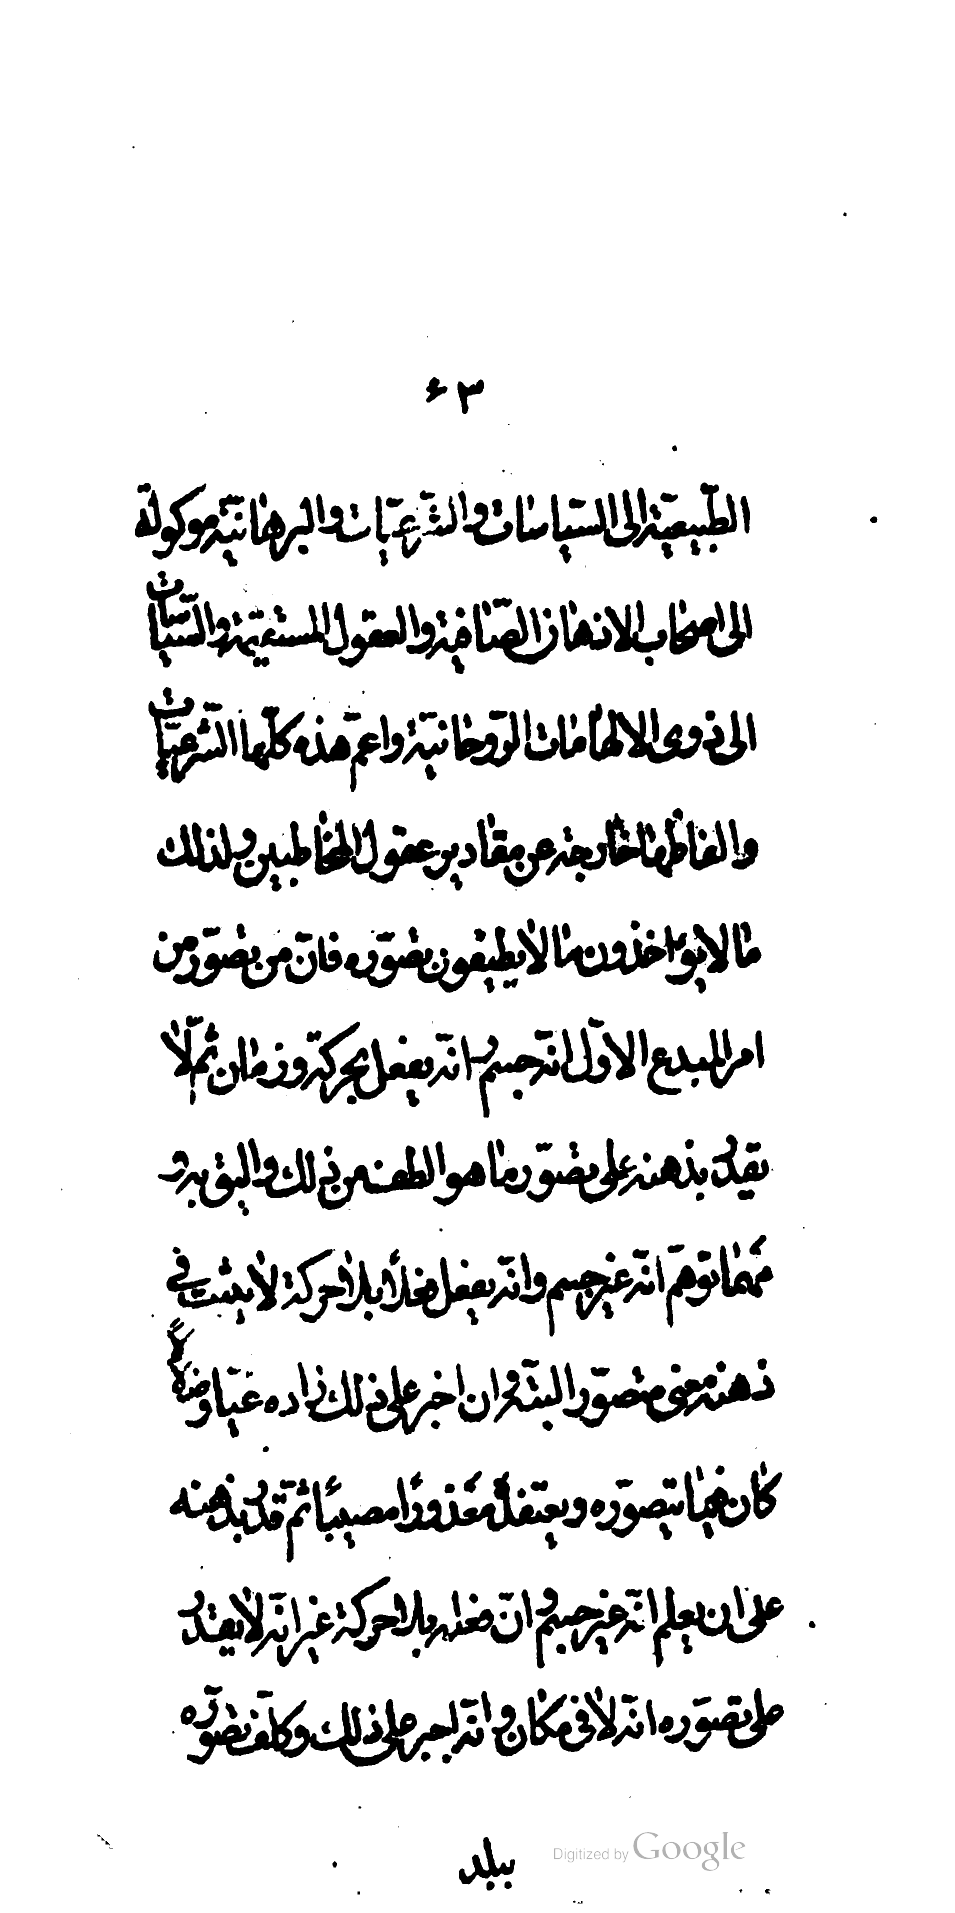 ٦٣
الطّبيعية الى السّياسات والشّرعيّات والبرهانيّة موكولة
الى اصحاب الاذهان الصّافية والعقول المستقيمة والسّياسات
الى ذوى الالهامات الرّوحانيّة واعم هذه كلّها الشّرعيّات
والفاظها خارجة عن مقادير عقول المخاطبين ولذلك
ما لا يؤاخذون ما لا يطيقون بصّوّره فانّ من تصّوّر من
امر المبدع الاوّل انّه جسم وانّه يفعل بحركة وزمان ثم لا
يقدر بذهنه على تصّوّر ما هو الطف من ذلك واليق به و
مهما توهّم انّه غير جسم وانّه يفعل فعلاً بلا حركة لا يثبت فى
ذهنه معنى متصّوّر البتّة وان اخبر على ذلك زاده غيّاً وضلالاً
كان فيما يتصوّره ويعتقد معذوراً مصيباً ثمّ قدر بذهنه
على ان يعلم انّه غير جسم وانّ فعله بلا حركة غير انّه لا يقدر
على تصوّره انّه لا فى مكان وانّه اجبر على ذلك وكلّف تصّوّره
ببلد
Digitized by Google